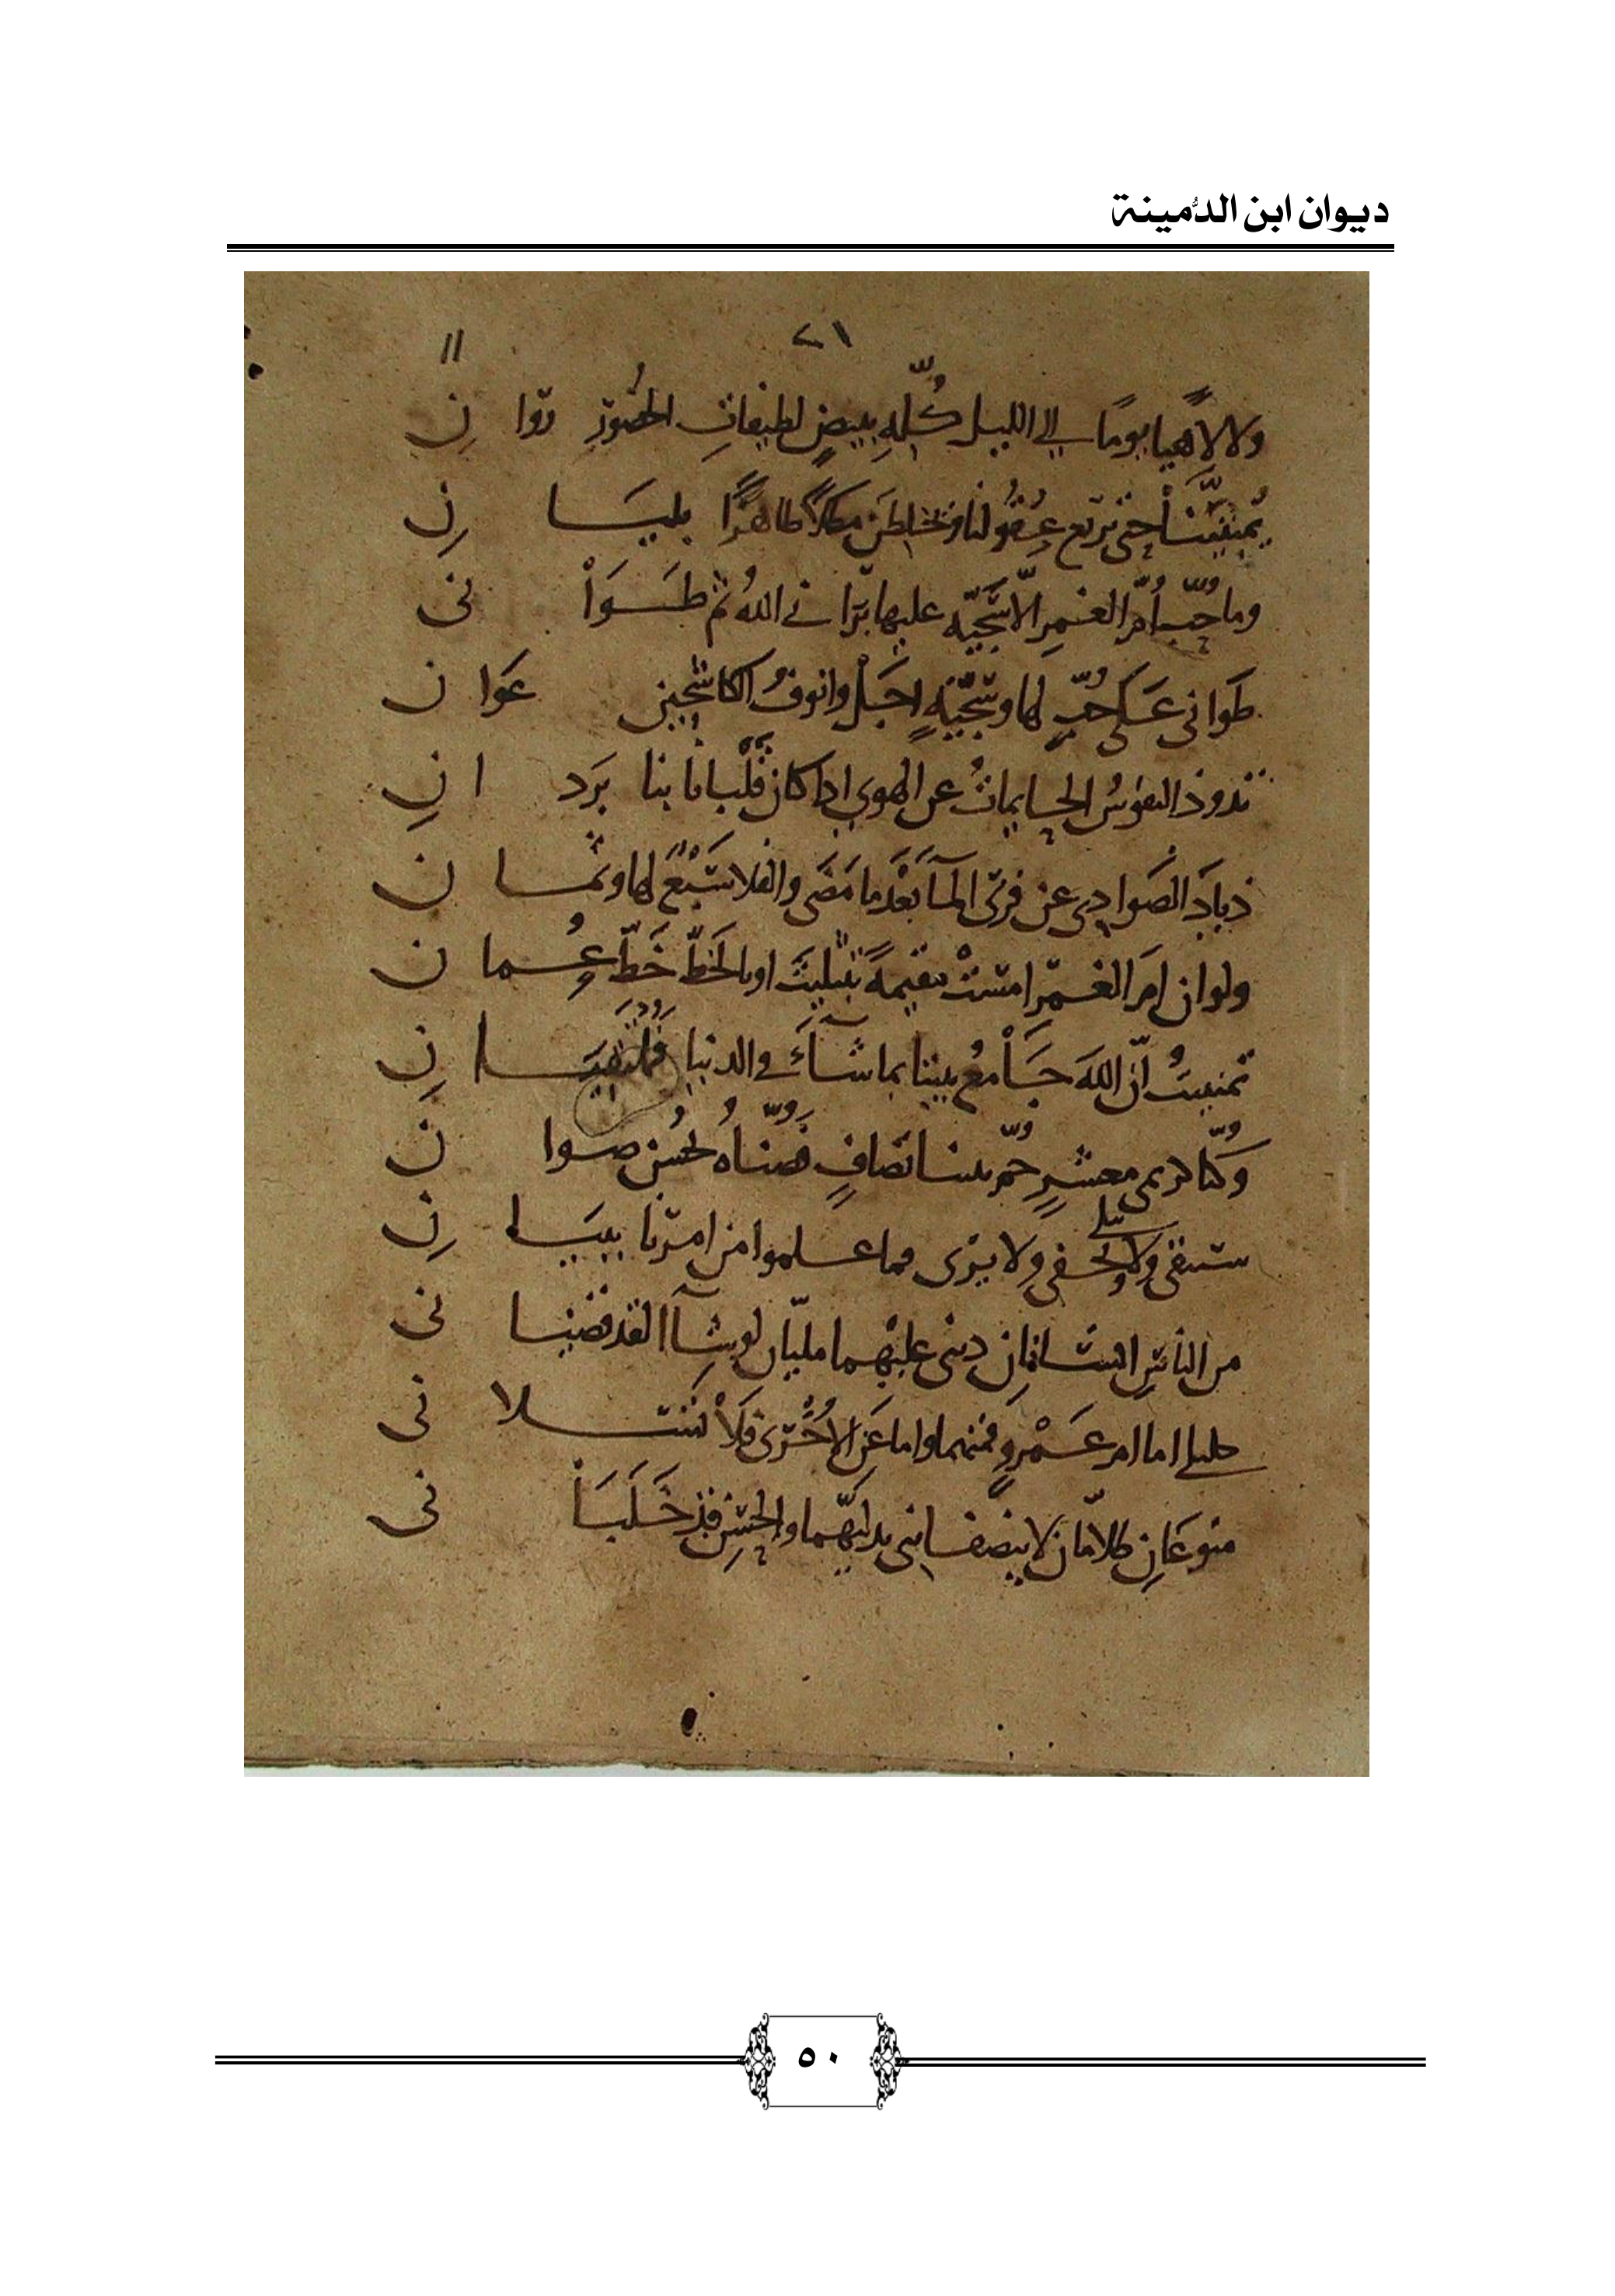 ديوان ابن الدُّمينة
٢١ ١١
ولا لاهيا يومًا الى الليل كُلِّه ببيضٍ لطيفاتِ الخصور روانِ
يُمنّيننا حتى تريع عقولنا ويخلطن مطلا ظاهرًا بليانِ
وما حُبُّ أمّ الغمر الا سَجيّه عليها برانى اللهُ ثم طوانى
طوانى على حُبٍّ لها وسَجيّةٍ اجل وانوفُ الكاشحين عوان
تذوذ النفوسُ الحايماتُ عن الهوى اذا كان قلبانا بنا بردانِ
ذيادَ الصوادى عن قرى المآ بَعْدَ ما مَضَى والفلا سَبْعٌ لها وثمان
ولو ان امّ الغمر امستْ مقيمةً بتثليثَ او بالخطّ خَطّ عُمان
تمنيتُ انّ الله جامعُ بيننا بما شآءَ فى الدنيا فملتقيانِ
وكنّا كريمى معشرٍ حُمّ بيننا تصافٍ فصنّاه لحسن صوان
ستبقى ولا يخفى ولا يزرى وما علموا من امرنا ببيانِ
من الناس انسانان دينى عليهما مليّان لو شآا لقد قضيانى
خليلى اما ام عَمْرٍو فمنهما واما عَن الاُخرى فلا تسئلانى
منوعَانِ ظلّامان لا ينصفانى بدلَّيهما والحسن قد خلبانى
٥٠